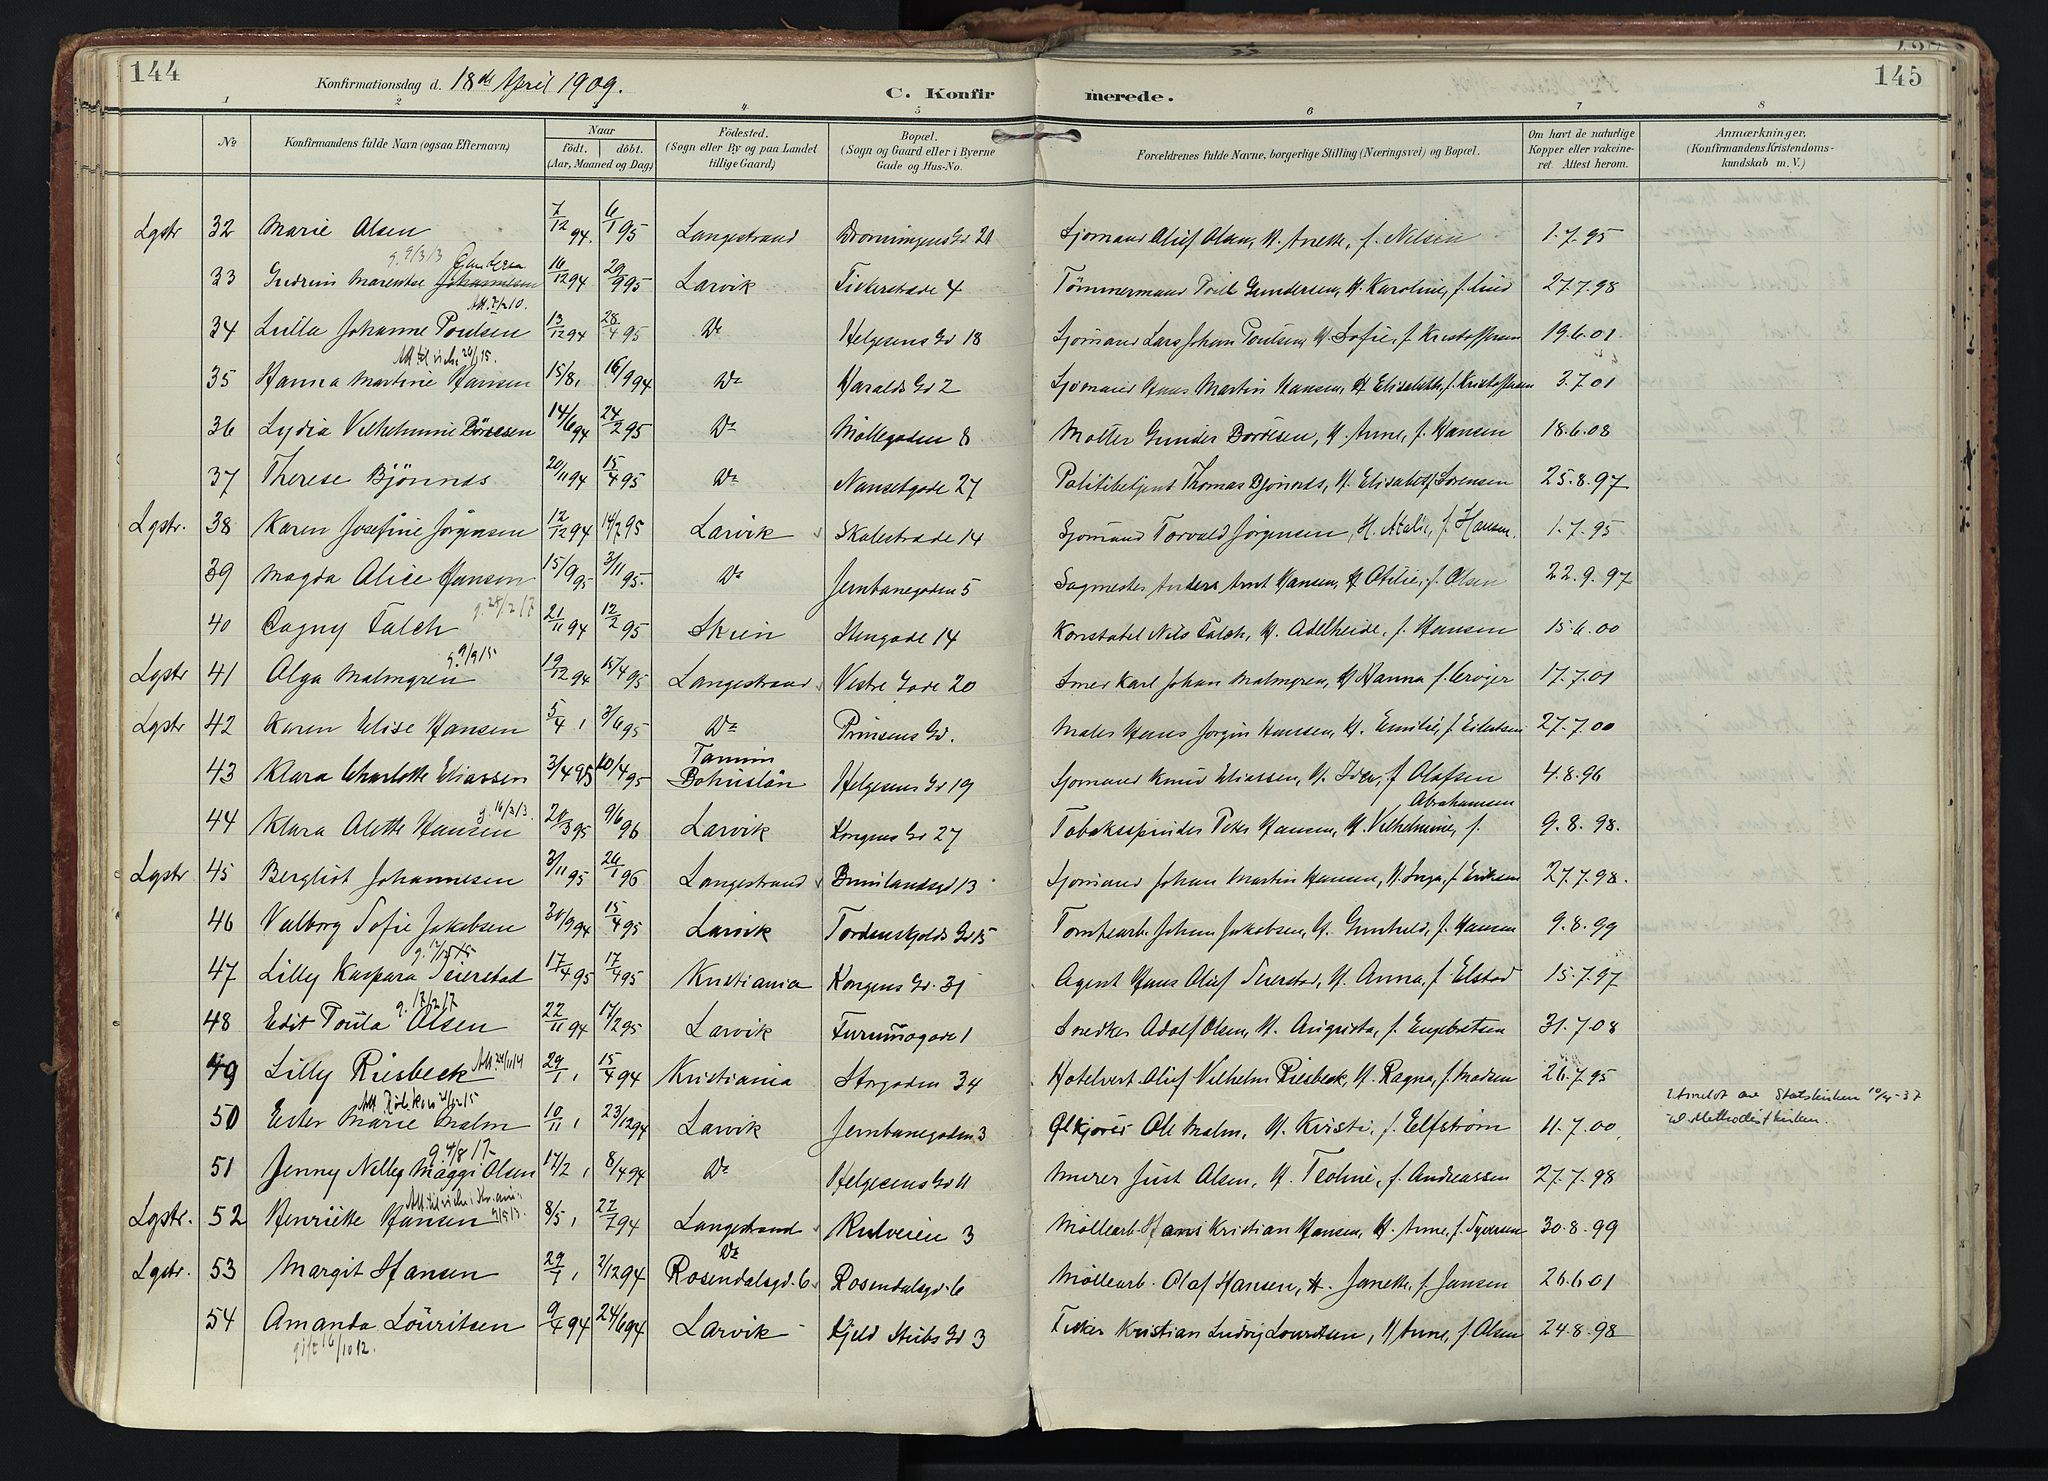 144
Konfirmationsdag d. 18de April 1909.
C. Konfir
merede.
145
1 2 3 4 5 6 7 8
No
Konfirmandens fulde Navn (ogsaa Efternavn)
Naar
født. døbt.
(Aar, Maaned og Dag)
Födested.
(Sogn eller By og paa Landet
tillige Gaard)
Bopæl.
(Sogn og Gaard eller i Byerne
Gade og Hus-No.
Forældrenes fulde Navne, borgerlige Stilling (Næringsvei) og Bopæl.
Om havt de naturlige
Kopper eller vakcine-
ret. Attest herom.
Anmærkninger.
(Konfirmandens Kristendoms-
kundskab m. V.)
Lgstr 32 Marie Olsen 7/12 94. 6/1 95 Langestrand Dronningens Gd 21 Sjømand Oluf Olsen, H. Anette, f. Nilsen 1.7.95
g. 9/3 13 Gundersen
33 Gudrun Marentse Johannesen 16/12 94 29/9 95 Larvik Fiskerstræde 4 Tømmermand Poul Gundersen, H. Karoline, f. Lund 27.7.98
Att. 7/2 10.
34 Lulla Johanne Poulsen 13/12 94 28/4 95 Do Helgesens Gd 18 Sjømand Lars Johan Poulsen, H. Sofie, f. Kristoffersen 19.6.01.
35 Hanna Martine Hansen 15/8, 16/9 94 Do Haralds Gd 2 Sjømand Hans Martin Hansen, H. Elisabeth, f. Kristoffersen 3.7.01
36 Lydia Vilhelmine Börresen 14/6 94 24/2 95 Do Møllegaden 8 Møller Gunder Børresen, H. Anne, f. Hansen 18.6.08
37 Therese Bjönnes 20/11 94 15/4 95 Do Nansetgade 27 Politibetjent Thomas Bjønnes, H. Elisabet, f. Sørensen 25.8.97
Lgstr. 38 Karen Josefine Jørgensen 12/12 94 14/2 95 Larvik Skolestræde 14 Sjømand Torvald Jørgensen, H. Atalie, f. Hansen. 1.7.95
39 Magda Alice Hansen 15/9 95 3/11 95. Do Jernbanegaden 5 Sagmester Anders Arnt Hansen, H. Otilie, f. Olsen 22.9.97
g. 24/2 17
40 Dagny Falch 21/11 94 12/2 95 Skien Stengade 14 Konstabel Nils Falch, H. Adelheide, f. Hansen 15.6.00
g. 9/9 15
Lgstr 41 Olga Malmgren 19/12 94 15/4 95 Langestrand Vestre Gade 20 Smed Karl Johan Malmgren, H. Hanna f. Crøger 17.7.01
Lgstr 42 Karen Elise Hansen 5/4, 3/6 95 Do Prinsens Gd. Maler Hans Jørgen Hansen, H. Emilie, f. Eilertsen 27.7.00
43 Klara Charlotte Eliassen 3/4 95 10/4 95 Tanum Bohuslän Helgesens Gd 19 Sjømand Knud Eliassen, H. Ida, f. Olafsen 4.8.96
g. 16/3 13. Abrahamsen
44 Klara Alette Hansen 20/3 95 9/6 96 Larvik Kongens Gd 27 Tobakspinder Peter Hansen, H. Vilhelmine, f. 9.8.98.
Lgstr 45 Bergliot Johannesen 3/11 95 26/1 96 Langestrand 13 Sjømand Johan Martin Hansen, H. Inga, f. Eriksen 27.7.98.
46 Valborg Sofie Jakobsen 30/9 94 15/4 95 Larvik Tordenskjolds Gd 15 Tomtearb. Johan Jakobsen, H. Gunhild, f. Hansen 9.8.99
47 Lilly Kaspara Seierstad 17/4 95 17/4 95 Kristiania Kongens Gd. 31 Agent Hans Oluf Seierstad, H. Anna, f. Elstad 15.7.97
g. 17/2 17
48 Edit Toula Olsen 22/11 94 17/2 95 Larvik Furumogade 1 Snedker Adolf Olsen, H. Augusta, f. Engebretsen 31.7.08
Att. 24/11 14
49 Lilly Riesbeck 29/1, 15/4 94 Kristiania Storgaden 34 Hotelvert Oluf Vilhelm Riesbeck, H. Ragna, f. Madsen 26.7.95
50 Ester Marie Malm 10/11, 23/12 94 Larvik Jernbanegaden 3 Ølkjører Ole Malm, H. Kristi, f. Elfstrøm 11.7.00
Utmeldt av Statskirken 10/4-37
til Methodistkirken.
g. 4/8 17
51 Jenny Nelly Maggi Olsen 17/2, 8/4 94 Do Helgesens Gd 11 Murer Just Olsen, H. Teoline, f. Andreassen 27.7.98
Lgstr. 52 Henriette Hansen 8/5, 22/7 94 Langestrand Kulveien 3 Møllearb. Hans Kristian Hansen, H. Anne, f. Syversen 30.8.99
Lgstr. 53 Margit Hansen 29/1, 2/12 94 Do Rosendalsgd. 6 Rosendalsgd. 6 Møllearb. Olaf Hansen, H. Janette, f. Jansen 26.6.01
54 Amanda Louritsen 9/4 94 24/6 94 Larvik Kjeld Stubs Gd 3 Fisker Kristian Ludvig Louritsen, H. Anne, f. Olsen 24.8.98
gift 16/10 12.